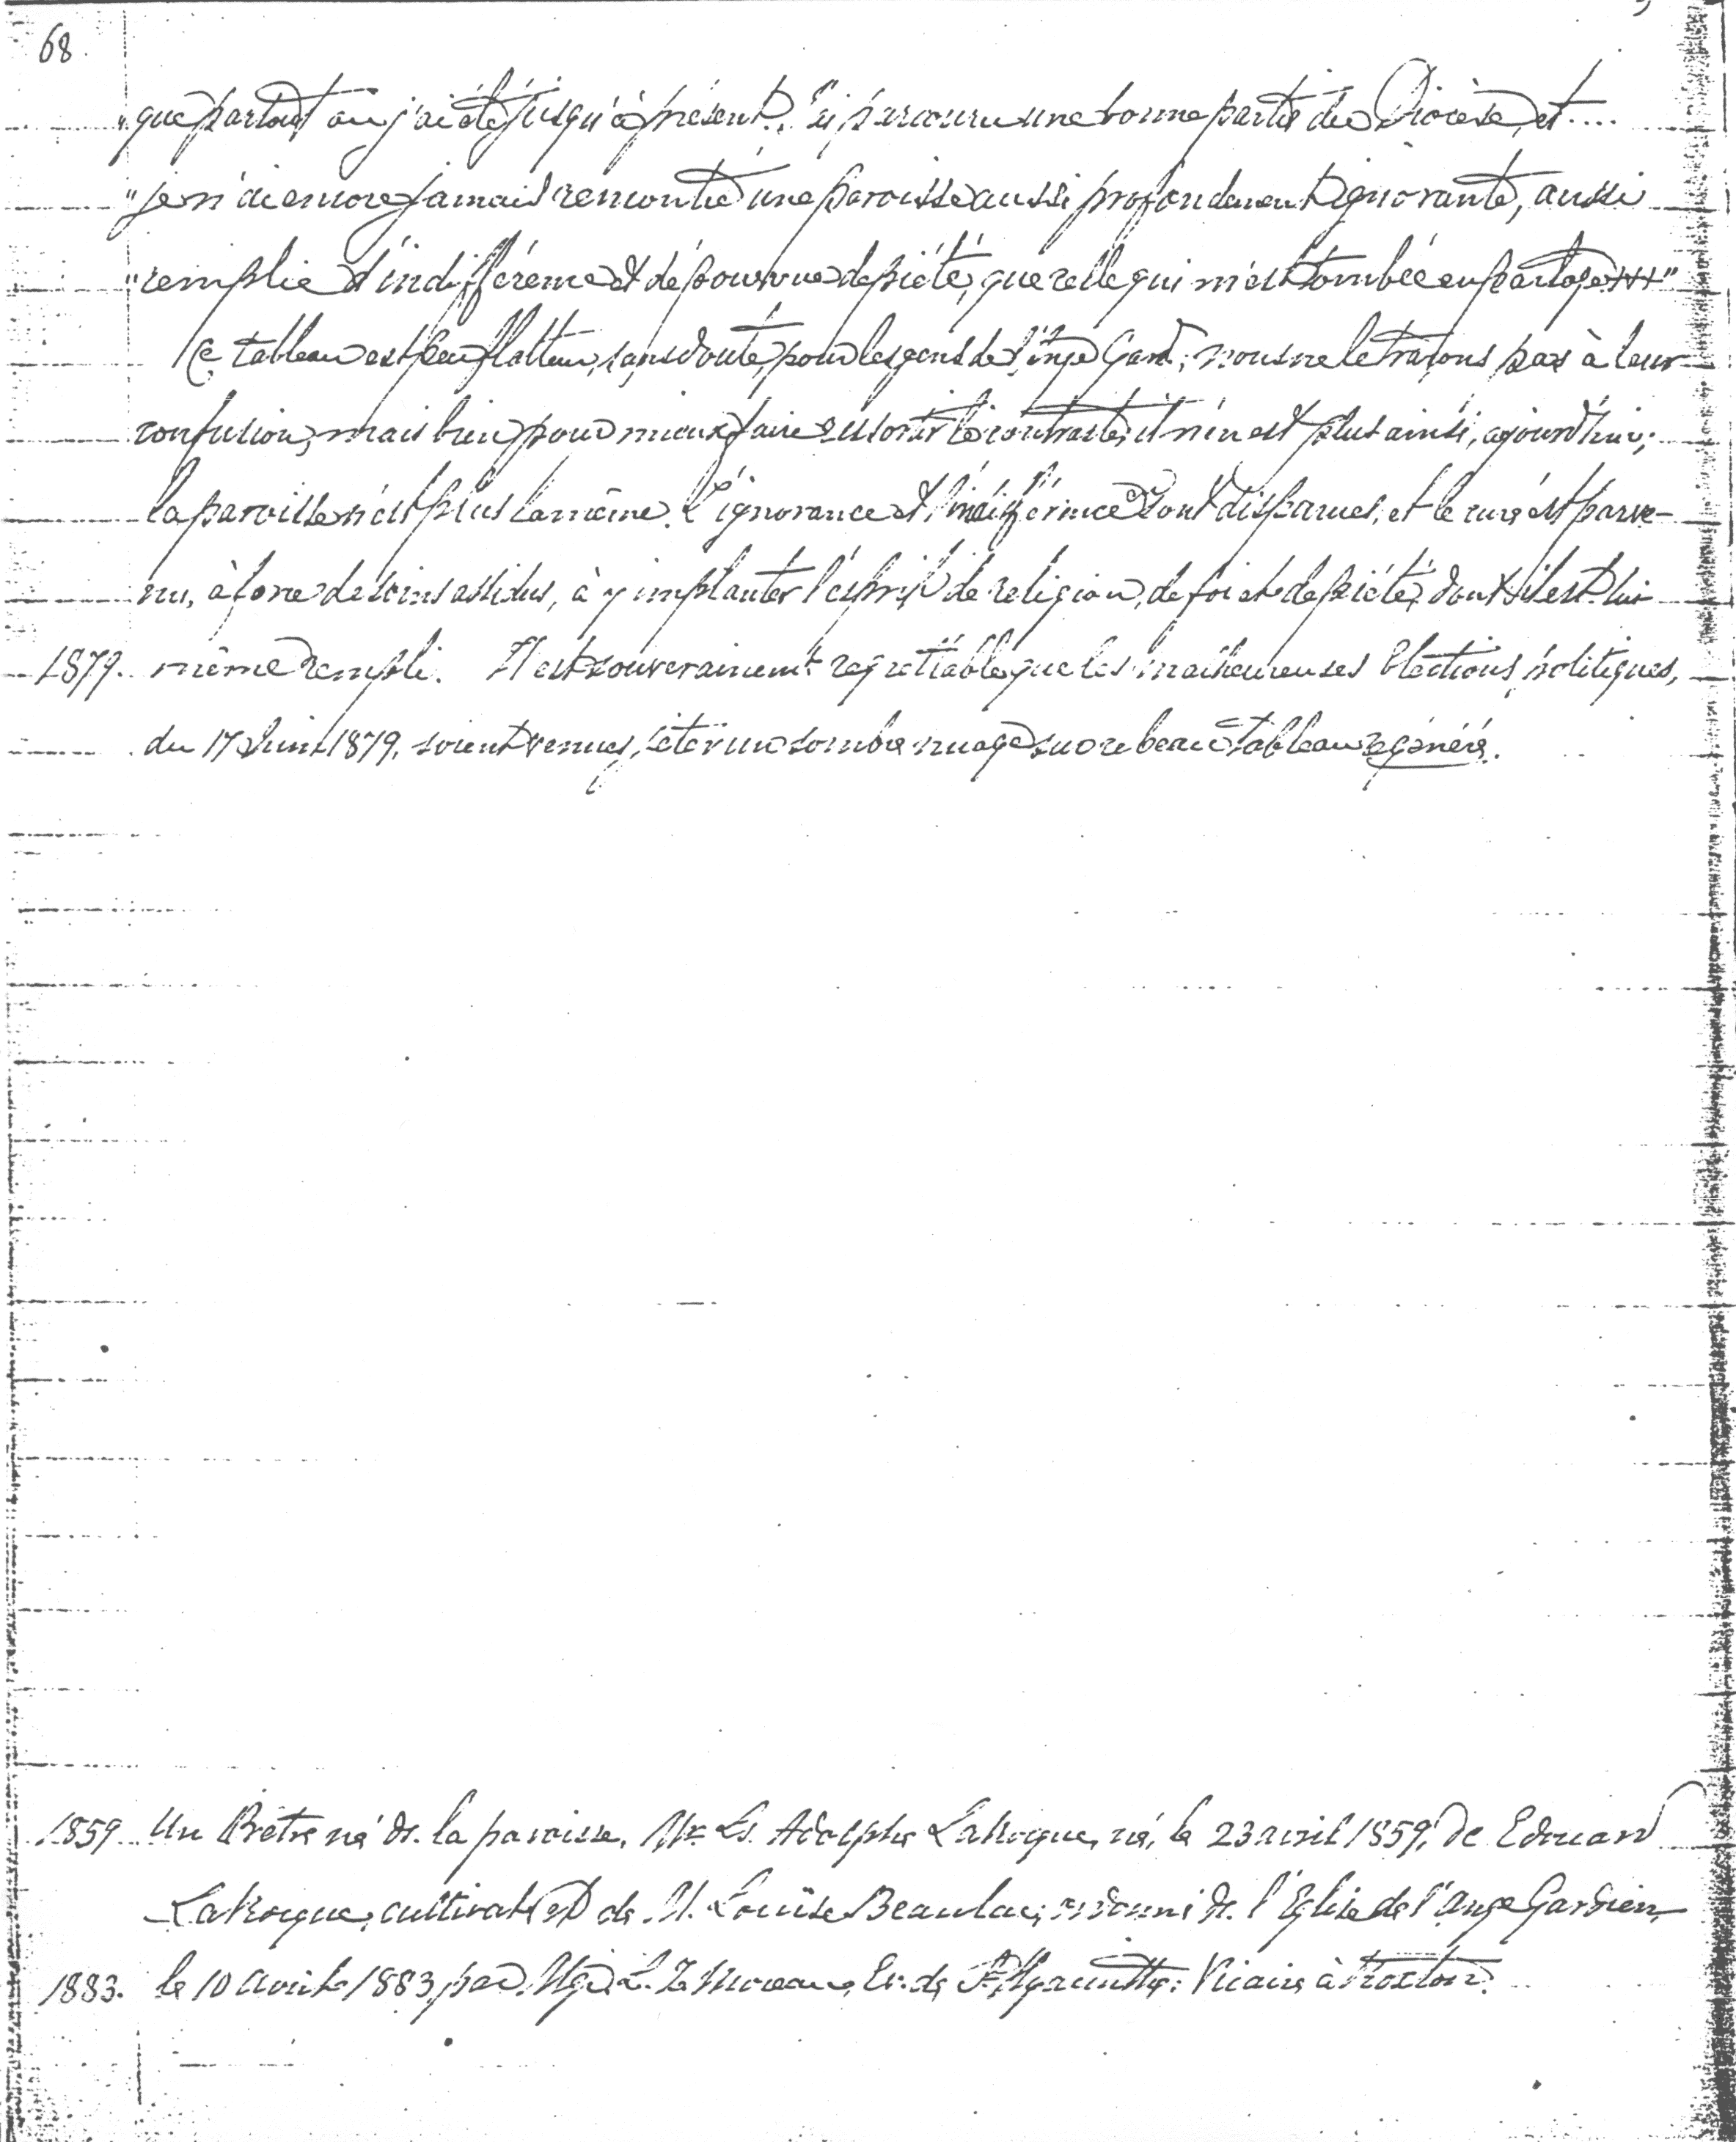 68.
"que partout où j'ai été jusqu'à présent. J'ai parcouru une bonne partie du Diocèse, et ....
"je n'ai encore jamais rencontré une paroisse aussi profondément ignorante, aussi
"remplie d'indifférence et dépourvue de piété, que celle qui m'est tombée en partage +++"
Ce tableau est peu flatteur, sans doute, pour les gens de l'Ange Gard.; nous ne le traçons pas à leur
confusion, mais bien pour mieux faire ressortir le contraste; il n'en est plus ainsi, aujourd'hui;
la paroisse n'est plus la même. L'ignorance et l'indifférence sont disparues, et le curé est parve-
nu, à force de soins assidus, à y implanter l'esprit de religion, de foi et de piété, dont il est lui-
1879. même rempli. Il est souverainement regrettable que les malheureuses Elections politiques,
du 17 Juin 1879, soient venues jeter un sombre nuage sur ce beau tableau régénéré.
1859 Un Prêtre né ds. la paroisse, Mr. Ls. Adolphe LaRocque, né, le 23 avril 1859, de Edouard
LaRocque, cultivat. et de M. Louïse Beaulac; ordonné ds. l'Eglise de l'Ange Gardien,
1883. le 10 Avril 1883, par Mgr. L. Z. Moreau, Ev. de St. Hyacinthe: Vicaire à Roxton.